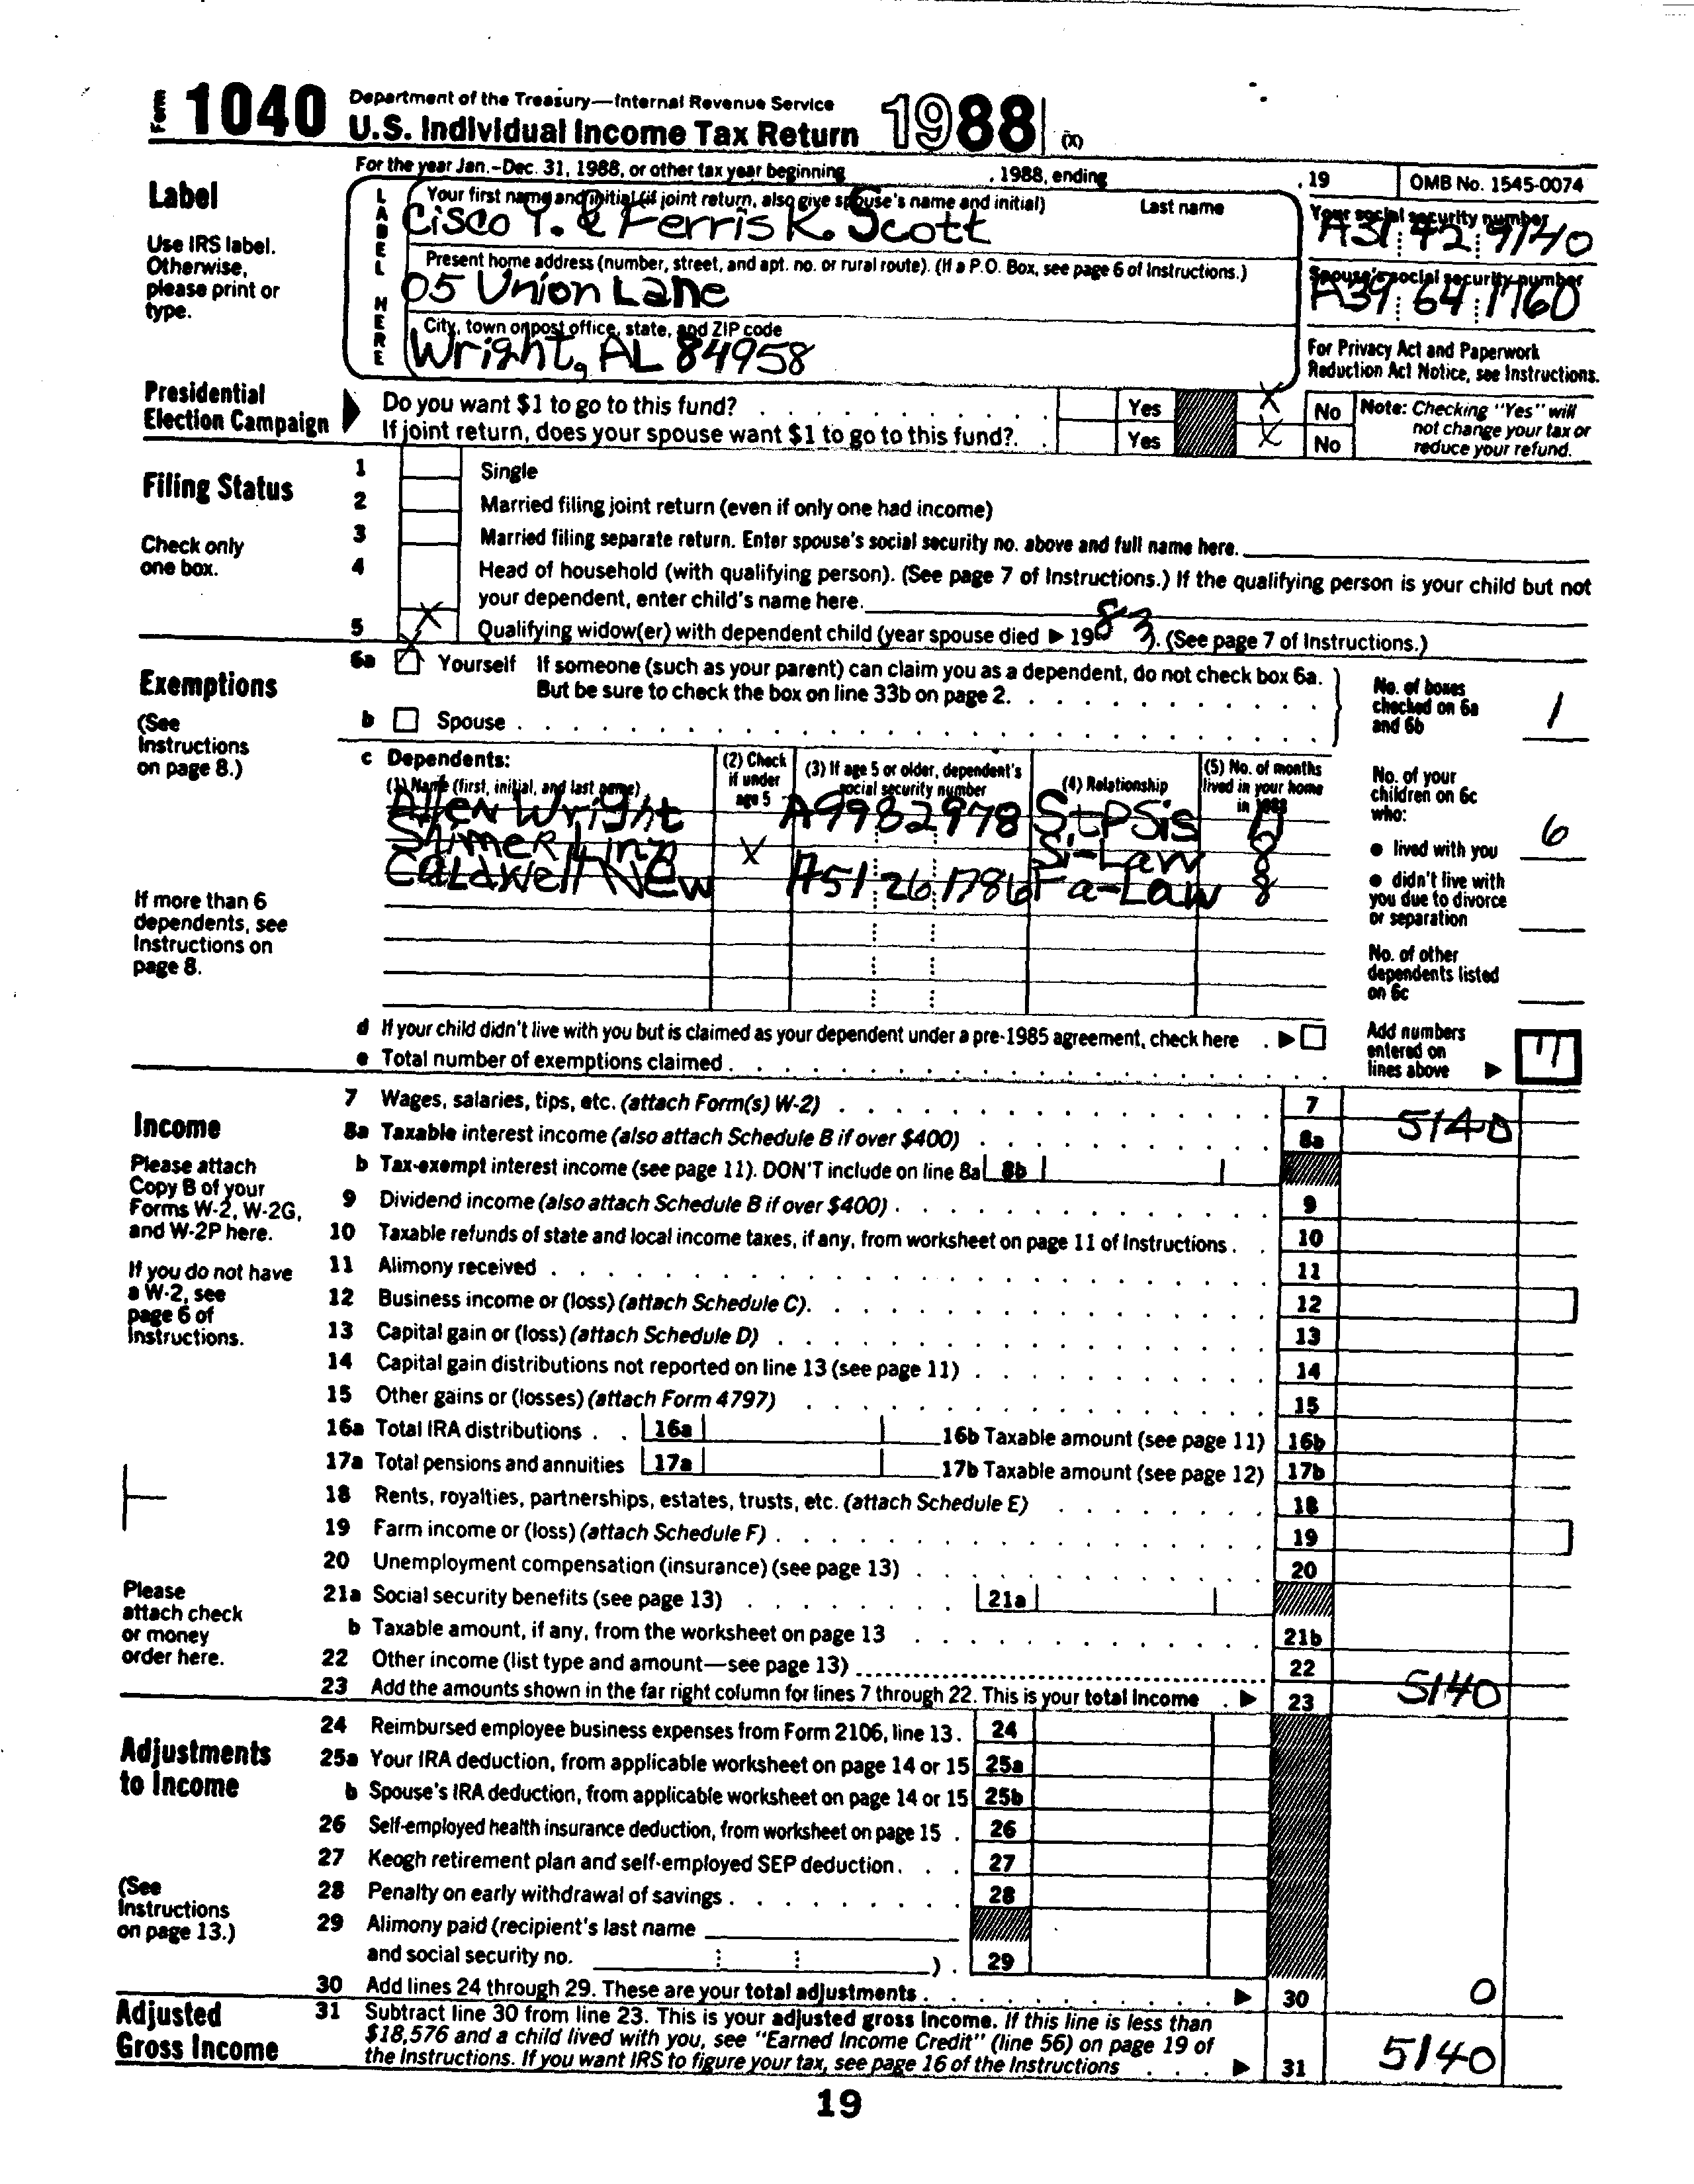 Form 1040 Department of the Treasury—Internal Revenue Service
U.S. Individual Income Tax Return 1988 (X)
For the year Jan.-Dec. 31, 1988, or other tax year beginning , 1988, ending , 19 OMB No. 1545-0074
Label
Use IRS label. Otherwise, please print or type.
LABEL HERE
Your first name and initial (if joint return, also give spouse's name and initial) Last name
Cisco Y. & Ferris K. Scott
Your social security number
A31 42 9140
Present home address (number, street, and apt. no. or rural route). (If a P.O. Box, see page 6 of Instructions.)
05 Union Lane
Spouse's social security number
A39 64 1760
City, town or post office, state, and ZIP code
Wright, AL 84958
For Privacy Act and Paperwork Reduction Act Notice, see Instructions.
Presidential Election Campaign
Do you want $1 to go to this fund? Yes X No
If joint return, does your spouse want $1 to go to this fund?. Yes X No
Note: Checking "Yes" will not change your tax or reduce your refund.
Filing Status
Check only one box.
1 Single
2 Married filing joint return (even if only one had income)
3 Married filing separate return. Enter spouse's social security no. above and full name here.
4 Head of household (with qualifying person). (See page 7 of Instructions.) If the qualifying person is your child but not
your dependent, enter child's name here.
5 X Qualifying widow(er) with dependent child (year spouse died ▶ 19 83). (See page 7 of Instructions.)
Exemptions
(See Instructions on page 8.)
6a X Yourself If someone (such as your parent) can claim you as a dependent, do not check box 6a.
But be sure to check the box on line 33b on page 2.
b Spouse
No. of boxes checked on 6a and 6b 1
c Dependents:
(1) Name (first, initial, and last name)
(2) Check if under age 5
(3) If age 5 or older, dependent's social security number
(4) Relationship
(5) No. of months lived in your home in 1988
Allen Wright A99 82 2978 StPSis
X Si-Law 8
Caldwell New A51 26 1786 Fa-Law 8
If more than 6 dependents, see Instructions on page 8.
No. of your children on 6c who:
● lived with you 6
● didn't live with you due to divorce or separation
No. of other dependents listed on 6c
d If your child didn't live with you but is claimed as your dependent under a pre-1985 agreement, check here . ▶
e Total number of exemptions claimed
Add numbers entered on lines above ▶ 7
Income
Please attach Copy B of your Forms W-2, W-2G, and W-2P here.
If you do not have a W-2, see page 6 of Instructions.
Please attach check or money order here.
7 Wages, salaries, tips, etc. (attach Form(s) W-2) 7 5140
8a Taxable interest income (also attach Schedule B if over $400) 8a
b Tax-exempt interest income (see page 11). DON'T include on line 8a 8b
9 Dividend income (also attach Schedule B if over $400) 9
10 Taxable refunds of state and local income taxes, if any, from worksheet on page 11 of Instructions 10
11 Alimony received 11
12 Business income or (loss) (attach Schedule C). 12
13 Capital gain or (loss) (attach Schedule D) 13
14 Capital gain distributions not reported on line 13 (see page 11) 14
15 Other gains or (losses) (attach Form 4797) 15
16a Total IRA distributions 16a 16b Taxable amount (see page 11) 16b
17a Total pensions and annuities 17a 17b Taxable amount (see page 12) 17b
18 Rents, royalties, partnerships, estates, trusts, etc. (attach Schedule E) 18
19 Farm income or (loss) (attach Schedule F) 19
20 Unemployment compensation (insurance) (see page 13) 20
21a Social security benefits (see page 13) 21a
b Taxable amount, if any, from the worksheet on page 13 21b
22 Other income (list type and amount—see page 13) 22
23 Add the amounts shown in the far right column for lines 7 through 22. This is your total income ▶ 23 5140
Adjustments to Income
(See Instructions on page 13.)
24 Reimbursed employee business expenses from Form 2106, line 13. 24
25a Your IRA deduction, from applicable worksheet on page 14 or 15 25a
b Spouse's IRA deduction, from applicable worksheet on page 14 or 15 25b
26 Self-employed health insurance deduction, from worksheet on page 15 26
27 Keogh retirement plan and self-employed SEP deduction 27
28 Penalty on early withdrawal of savings 28
29 Alimony paid (recipient's last name
and social security no. ) 29
30 Add lines 24 through 29. These are your total adjustments ▶ 30 0
Adjusted Gross Income
31 Subtract line 30 from line 23. This is your adjusted gross income. If this line is less than
$18,576 and a child lived with you, see "Earned Income Credit" (line 56) on page 19 of
the Instructions. If you want IRS to figure your tax, see page 16 of the Instructions ▶ 31 5140
19